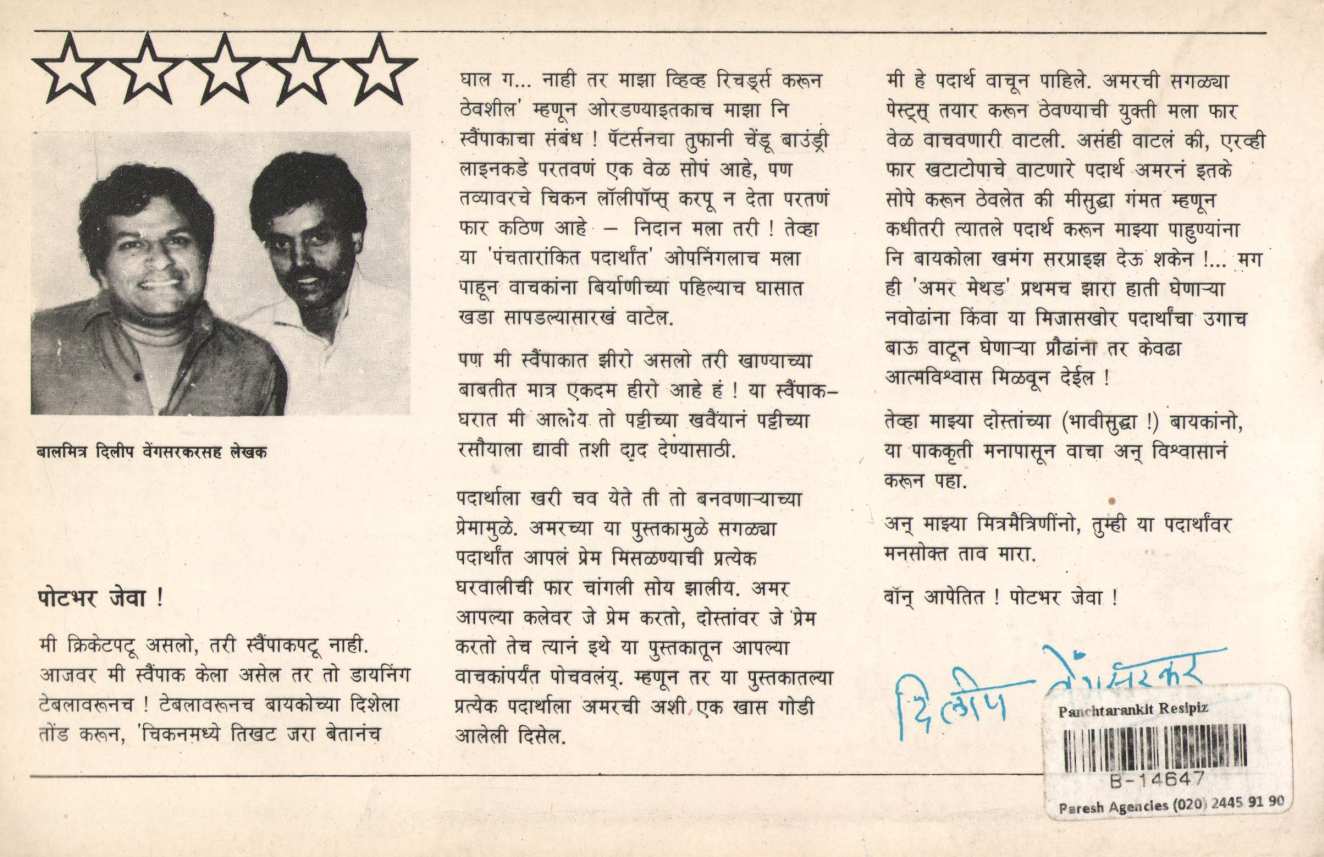 बालमित्र दिलीप वेंगसरकरसह लेखक
पोटभर जेवा !
मी क्रिकेटपटू असलो, तरी स्वैंपाकपटू नाही.
आजवर मी स्वैंपाक केला असेल तर तो डायनिंग
टेबलावरूनच ! टेबलावरूनच बायकोच्या दिशेला
तोंड करून, 'चिकनमध्ये तिखट जरा बेतानंच
घाल ग... नाही तर माझा व्हिव्ह रिचर्ड्स करून
ठेवशील' म्हणून ओरडण्याइतकाच माझा नि
स्वैंपाकाचा संबंध ! पॅटर्सनचा तुफानी चेंडू बाउंड्री
लाइनकडे परतवणं एक वेळ सोपं आहे, पण
तव्यावरचे चिकन लॉलीपॉप्स् करपू न देता परतणं
फार कठिण आहे – निदान मला तरी ! तेव्हा
या 'पंचतारांकित पदार्थांत' ओपनिंगलाच मला
पाहून वाचकांना बिर्याणीच्या पहिल्याच घासात
खडा सापडल्यासारखं वाटेल.
पण मी स्वैंपाकात झीरो असलो तरी खाण्याच्या
बाबतीत मात्र एकदम हीरो आहे हं ! या स्वैंपाक–
घरात मी आलोय तो पट्टीच्या खवैयानं पट्टीच्या
रसौयाला द्यावी तशी दाद देण्यासाठी.
पदार्थाला खरी चव येते ती तो बनवणाऱ्याच्या
प्रेमामुळे. अमरच्या या पुस्तकामुळे सगळ्या
पदार्थांत आपलं प्रेम मिसळण्याची प्रत्येक
घरवालीची फार चांगली सोय झालीय. अमर
आपल्या कलेवर जे प्रेम करतो, दोस्तांवर जे प्रेम
करतो तेच त्यानं इथे या पुस्तकातून आपल्या
वाचकांपर्यंत पोचवलंय्. म्हणून तर या पुस्तकातल्या
प्रत्येक पदार्थाला अमरची अशी एक खास गोडी
आलेली दिसेल.
मी हे पदार्थ वाचून पाहिले. अमरची सगळ्या
पेस्ट्स् तयार करून ठेवण्याची युक्ती मला फार
वेळ वाचवणारी वाटली. असंही वाटलं की, एरव्ही
फार खटाटोपाचे वाटणारे पदार्थ अमरनं इतके
सोपे करून ठेवलेत की मीसुद्धा गंमत म्हणून
कधीतरी त्यातले पदार्थ करून माझ्या पाहुण्यांना
नि बायकोला खमंग सरप्राइझ देऊ शकेन !... मग
ही 'अमर मेथड' प्रथमच झारा हाती घेणाऱ्या
नवोढांना किंवा या मिजासखोर पदार्थांचा उगाच
बाऊ वाटून घेणाऱ्या प्रौढांना तर केवढा
आत्मविश्वास मिळवून देईल !
तेव्हा माझ्या दोस्तांच्या (भावीसुद्धा !) बायकांनो,
या पाककृती मनापासून वाचा अन् विश्वासानं
करून पहा.
अन् माझ्या मित्रमैत्रिणींनो, तुम्ही या पदार्थांवर
मनसोक्त ताव मारा.
बॉन् आपेतित ! पोटभर जेवा !
दिलीप वेंगसरकर
Panchtarankit Resipiz
B-14647
Paresh Agencies (020) 2445 91 90